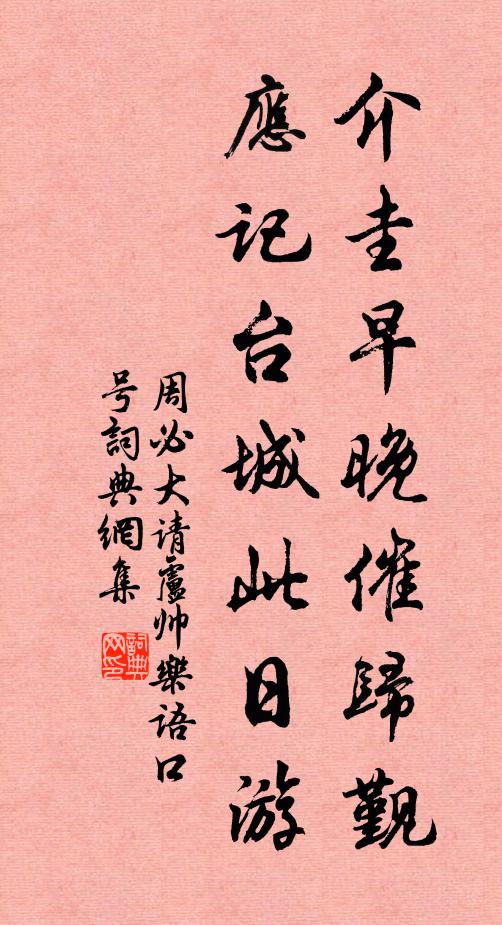 介圭早晚催歸觀
應记台城此日游
周必大请盧帅樂语口
号詞典網集
詞典网印